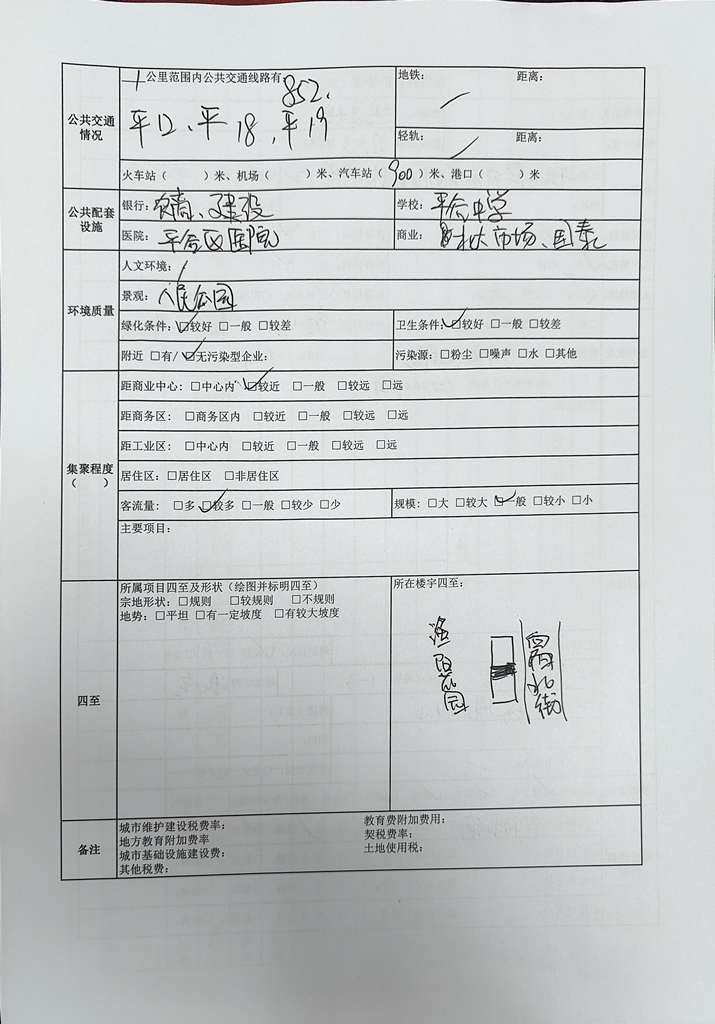 一公里范围内公共交通线路有:
852、
平12、平18、平19
公共交通情况
地铁: 距离:
轻轨: 距离:
火车站( )米、机场( )米、汽车站(900)米、港口( )米
公共配套设施
银行: 农商、建设
学校: 平谷中学
医院: 平谷区医院
商业: 市场、国泰
环境质量
人文环境: /
景观: 人民公园
绿化条件: ☑较好 □一般 □较差
卫生条件: ☑较好 □一般 □较差
附近 □有/☑无污染型企业:
污染源: □粉尘 □噪声 □水 □其他
集聚程度
( )
距商业中心: □中心内 ☑较近 □一般 □较远 □远
距商务区: □商务区内 □较近 □一般 □较远 □远
距工业区: □中心内 □较近 □一般 □较远 □远
居住区: □居住区 □非居住区
客流量: □多 ☑较多 □一般 □较少 □少
规模: □大 □较大 ☑一般 □较小 □小
主要项目:
四至
所属项目四至及形状(绘图并标明四至)
宗地形状: □规则 □较规则 □不规则
地势: □平坦 □有一定坡度 □有较大坡度
所在楼宇四至:
渔阳花园
北街
备注
城市维护建设税费率: 教育费附加费用:
地方教育附加费率 契税费率:
城市基础设施建设费: 土地使用税:
其他税费: